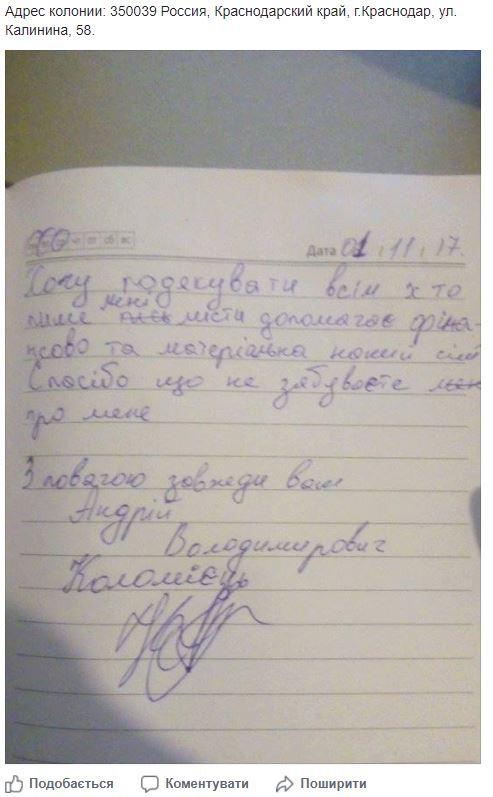 Адрес колонии: 350039 Россия, Краснодарский край, г.Краснодар, ул.
Калинина, 58.
чт пт сб вс
Дата 01.11.17.
Хочу подякувати всім хто
пише мені листи допомагає фіна-
нсово та матеріальна
Спасібо що не забуваєте
про мене
З повагою завжди ваш
Андрій
Володимирович
Коломієць
Подобається Коментувати Поширити